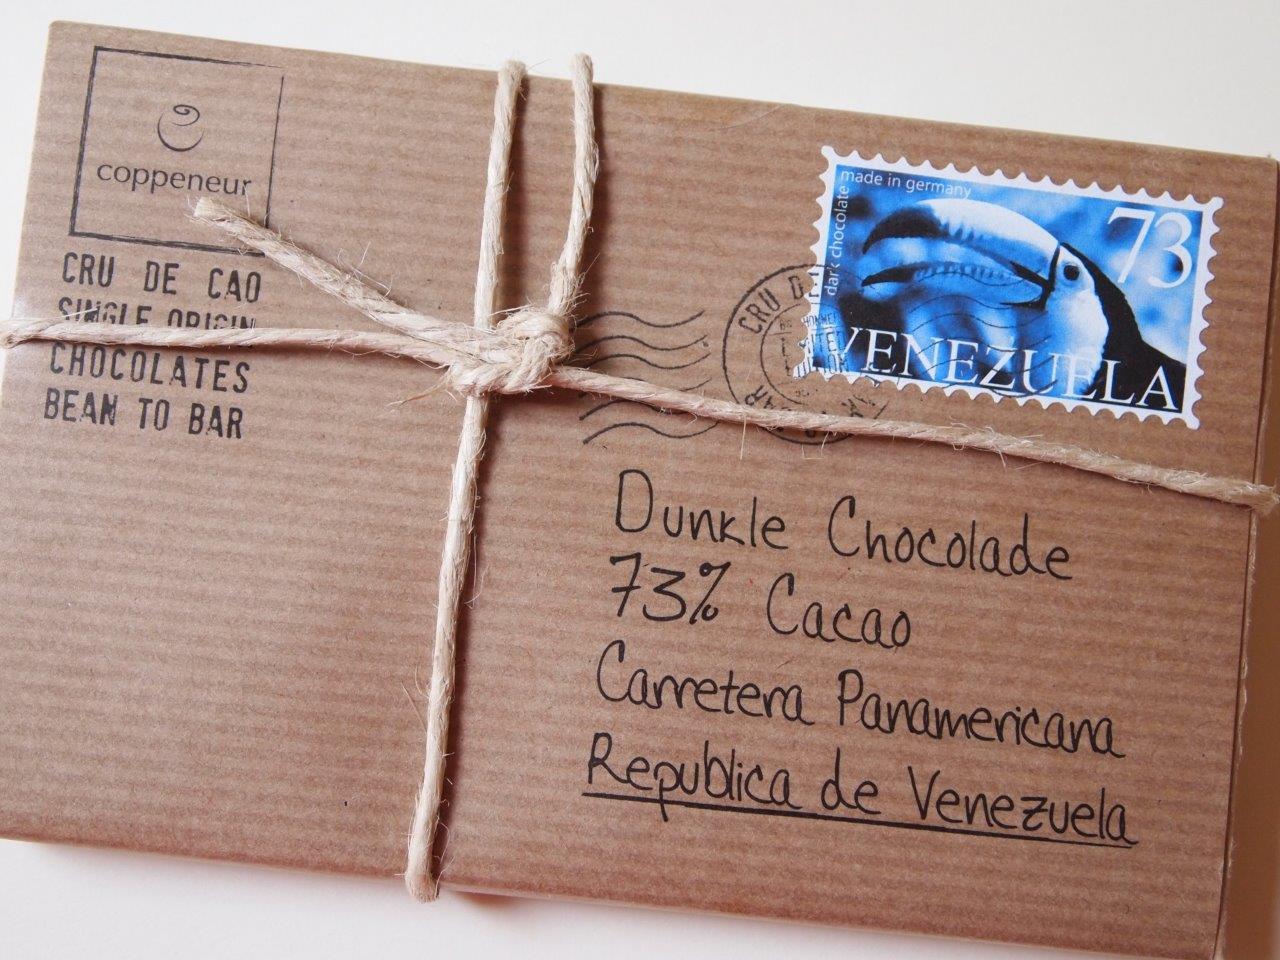 coppeneur
CRU DE CAO
SINGLE ORIGIN
CHOCOLATES
BEAN TO BAR
made in germany
dark chocolate
73
VENEZUELA
CRU DE
Dunkle Chocolade
73% Cacao
Carretera Panamericana
Republica de Venezuela